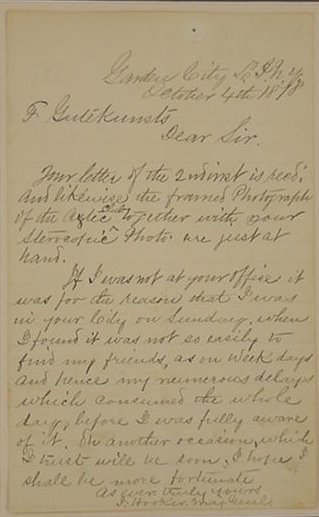 Garden City L. I. N. Y.
October 4th 1878
F Gutekunsts
Dear Sir.
Your letter of the 2nd inst is recd.
And likewise the framed Photograph
of the Aztec Club together with your
Stereopic Photo. are just at
hand.
If I was not at your office it
was for the reason that I was
in your City on Sunday, when
I found it was not so easily to
find my friends, as on Week days
and hence my numerous delays
which consumed the whole
day, before I was fully aware
of it. On another occasion, which
I trust will be soon, I hope I
shall be more fortunate
As ever truly yours
J. Hooker. Maj Genl.